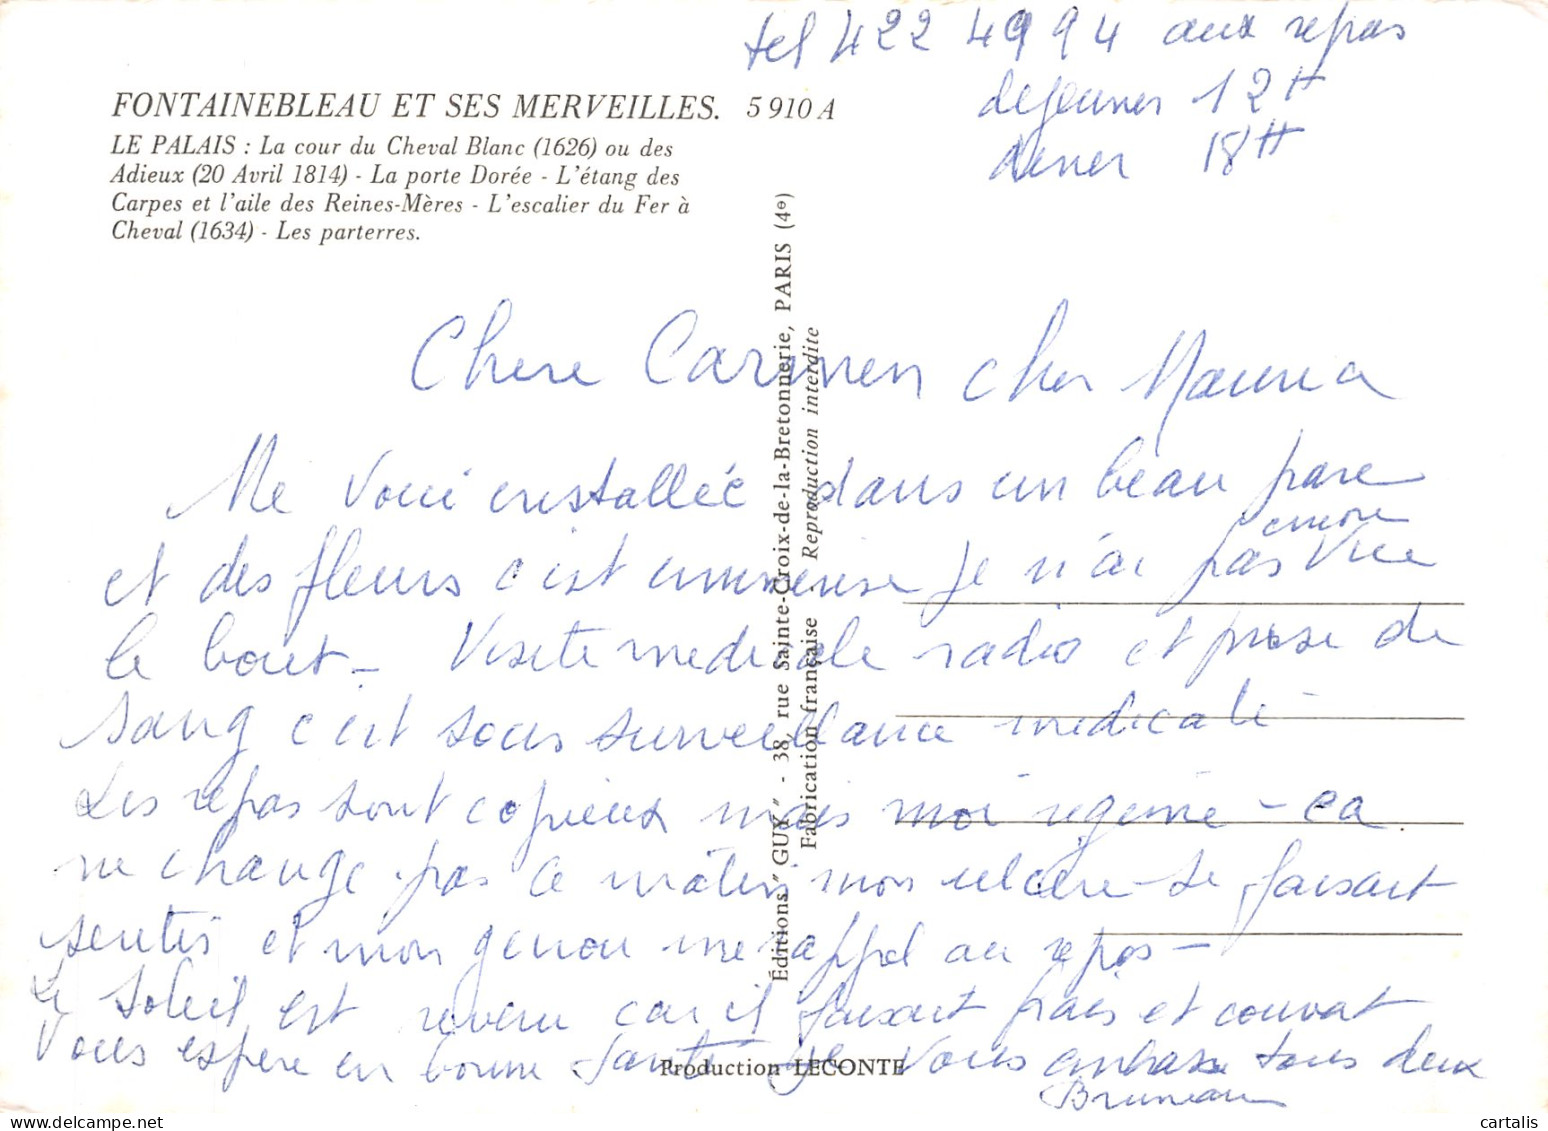 tel 422 49 94 aux repas
dejeuner 12H
diner 18H
FONTAINEBLEAU ET SES MERVEILLES. 5 910 A
LE PALAIS : La cour du Cheval Blanc (1626) ou des
Adieux (20 Avril 1814) - La porte Dorée - L'étang des
Carpes et l'aile des Reines-Mères - L'escalier du Fer à
Cheval (1634) - Les parterres.
Éditions "GUY" - 38, rue Sainte-Croix-de-la-Bretonnerie, PARIS (4e)
Fabrication française Reproduction interdite
Chere Carmen cher
Me voici installée dans un beau parc
encore
et des fleurs c'est immense je n'ai pas vue
le bout - Visite medicale radio et prise de
sang c'est sous surveillance medicale
Les repas sont copieux mais moi regime - ca
ne change pas ce matin mon ulcère se faisait
sentir et mon genou me rappel au repos -
Le soleil est revenu car il faisait frais et couvert
Vous espere en bonne santé Je vous embrasse tous deux
Bruneau
Production LECONTE
cartalis